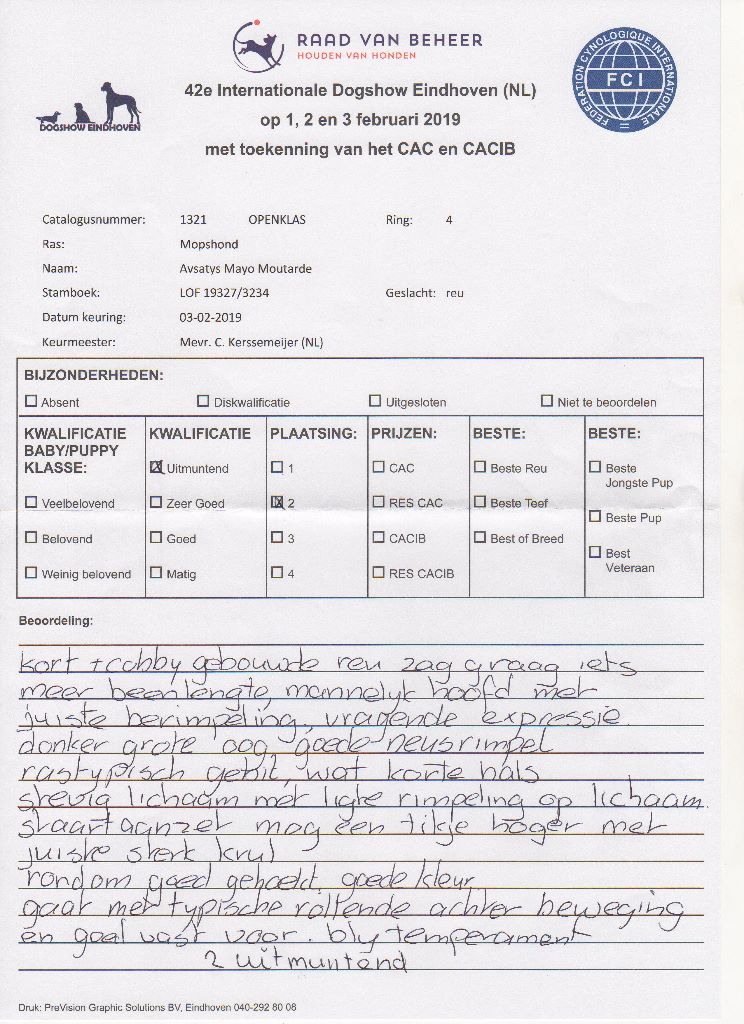 RAAD VAN BEHEER
HOUDEN VAN HONDEN
FEDERATION CYNOLOGIQUE INTERNATIONALE
FCI
DOGSHOW EINDHOVEN
42e Internationale Dogshow Eindhoven (NL)
op 1, 2 en 3 februari 2019
met toekenning van het CAC en CACIB
Catalogusnummer: 1321 OPENKLAS Ring: 4
Ras: Mopshond
Naam: Avsatys Mayo Moutarde
Stamboek: LOF 19327/3234 Geslacht: reu
Datum keuring: 03-02-2019
Keurmeester: Mevr. C. Kerssemeijer (NL)
BIJZONDERHEDEN:
Absent Diskwalificatie Uitgesloten Niet te beoordelen
KWALIFICATIE
BABY/PUPPY
KLASSE:
Veelbelovend
Belovend
Weinig belovend
KWALIFICATIE
Uitmuntend
Zeer Goed
Goed
Matig
PLAATSING:
1
2
3
4
PRIJZEN:
CAC
RES CAC
CACIB
RES CACIB
BESTE:
Beste Reu
Beste Teef
Best of Breed
BESTE:
Beste
Jongste Pup
Beste Pup
Best
Veteraan
Beoordeling:
kort + cobby gebouwde reu zag graag iets
meer beenlengte, mannelijk hoofd met
juiste berimpeling, vragende expressie
donker grote oog goede neusrimpel
rastypisch gebit, wat korte hals
stevig lichaam met lichte rimpeling op lichaam.
staartaanzet mag een tikje hoger met
juiste sterk krul
rondom goed gehoekt, goede kleur
gaat met typische rollende achter beweging
en goed vast voor. blij temperament
2 uitmuntend
Druk: PreVision Graphic Solutions BV, Eindhoven 040-292 80 08